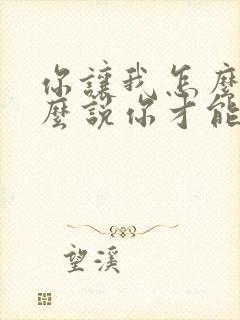 你讓我怎麼
麼說你才能
望溪